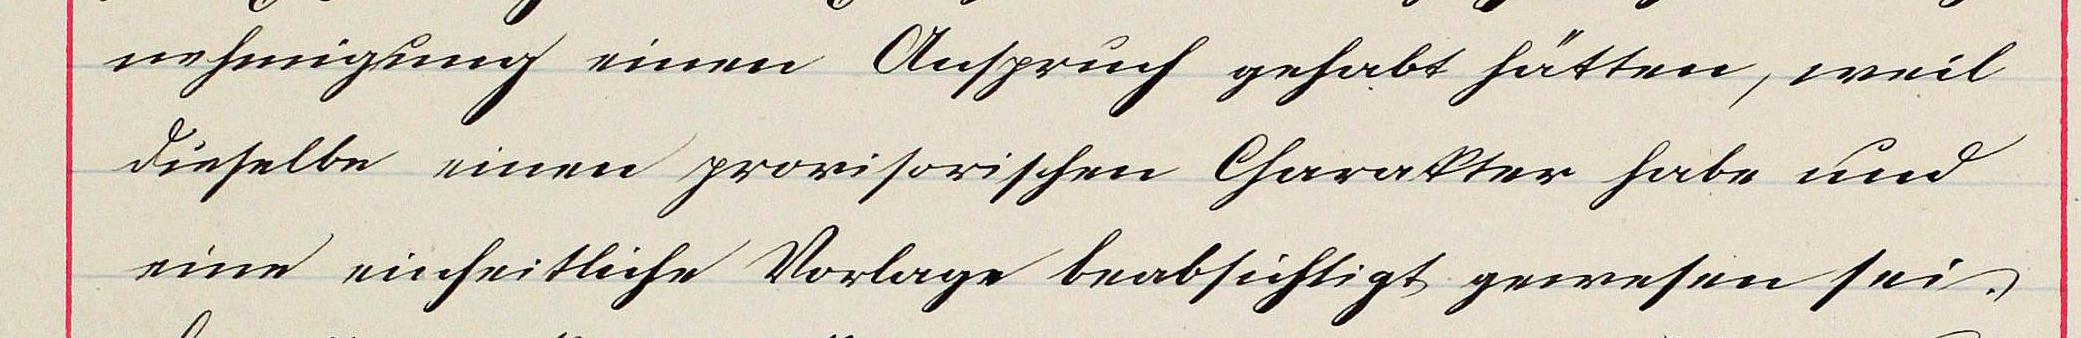 nehmigung einen Anspruch gehabt hätten, weil
dieselbe einen provisorischen Charakter habe und
eine einheitliche Vorlage beabsichtigt gewesen sei.